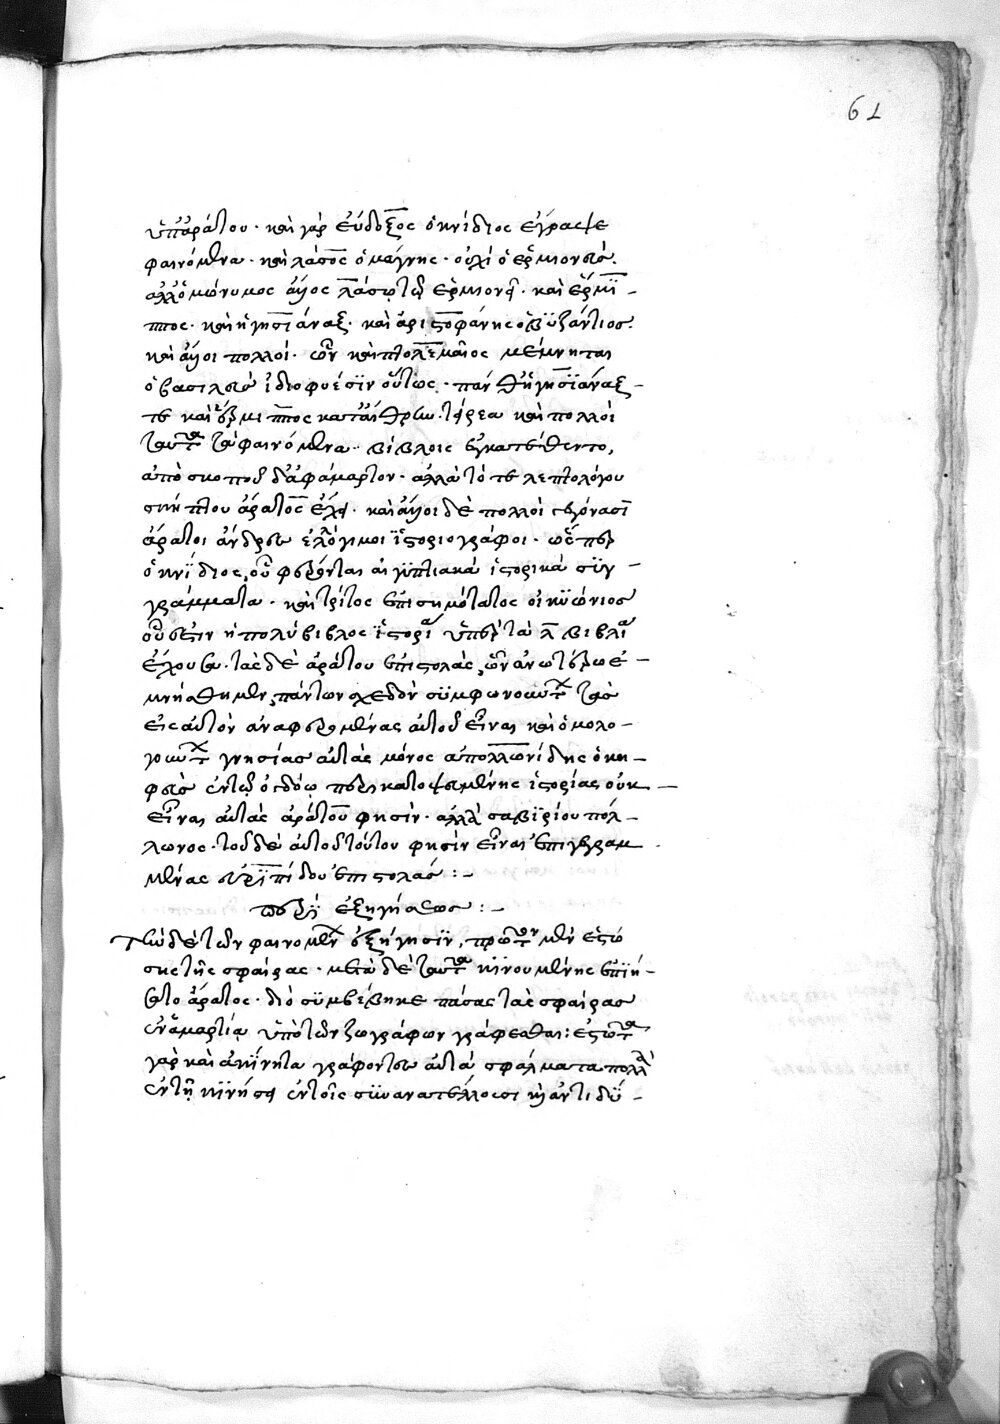 61
ὑπ' ἀράτου· καὶ γὰρ εὔδοξος ὁ κνίδιος ἔγραψε
φαινόμενα· καὶ λάσος ὁ μάγνης· οὐχὶ ὁ ἑρμιονεύς·
ἀλλ' ὁμώνυμος ἄλλος λάσῳ τῷ ἑρμιονεῖ· καὶ ἕρμιπ-
πος· καὶ ἡγησιάναξ· καὶ ἀριστοφάνης ὁ βυζάντιος·
καὶ ἄλλοι πολλοί· ὧν καὶ πτολεμαῖος μέμνηται
ὁ βασιλεὺς ἰδιοφυέσιν οὕτως· πάνθ' ἡγησιάναξ
τε καὶ ἕρμιππος κατ' αἴθρην τείρεα καὶ πολλοὶ
ταῦτα τὰ φαινόμενα βίβλοις ἐγκατέθεντο,
ἀπὸ σκοποῦ δ' ἀφάμαρτον· ἀλλὰ τό τε λεπτολόγου
σκήπτρου ἄρατος ἔχει· καὶ ἄλλοι δὲ πολλοὶ γεγόνασι
ἄρατοι ἄνδρες ἐλλόγιμοι ἱστοριογράφοι· ὥσπερ
ὁ κνίδιος, οὗ φέρονται αἰγυπτιακὰ ἱστορικὰ συγ-
γράμματα· καὶ τρίτος ἐπισημότατος σικυώνιος
οὗ ἐστιν ἡ πολύβιβλος ἱστορία ὑπὲρ τὰ λ βιβλία
ἔχουσα· τὰς δὲ ἀράτου ἐπιστολὰς, ὧν ἀνωτέρω ἐ-
μνήσθημεν, πάντων σχεδὸν συμφωνούντων ταῖς
εἰς αὐτὸν ἀναφερομένας αὐτοῦ εἶναι καὶ ὁμολο-
γούντων γνησίας αὐτὰς μόνος ἀπολλωνίδης ὁ κη-
φεὺς ἐν τῷ ὀγδόῳ περὶ κατεψευσμένης ἱστορίας οὐκ
εἶναι αὐτὰς ἀράτου φησὶν· ἀλλὰ σαβιρίου πόλ-
λωνος· τοῦ δὲ αὐτοῦ τούτου φησὶν εἶναι ἐπιγεγραμ
μένας εὐριπίδου ἐπιστολάς:-
περὶ ἐξηγήσεως:-
τὴν δὲ τῶν φαινομένων ἐξήγησιν, πρῶτον μὲν ἑστώ
σης τῆς σφαίρας· μετὰ δὲ ταῦτα κινουμένης ἐποιή-
σατο ἄρατος· διὸ συμβέβηκε πάσας τὰς σφαίρας
ἐν ἁμαρτίᾳ ὑπὸ τῶν ζωγράφων γράφεσθαι: ἑστῶτα
γὰρ καὶ ἀκίνητα γράφοντες αὐτὰ σφάλματα πολλὰ
ἐν τῇ κινήσει ἐν τοῖς συνανατέλλουσι καὶ ἀντιδύ-